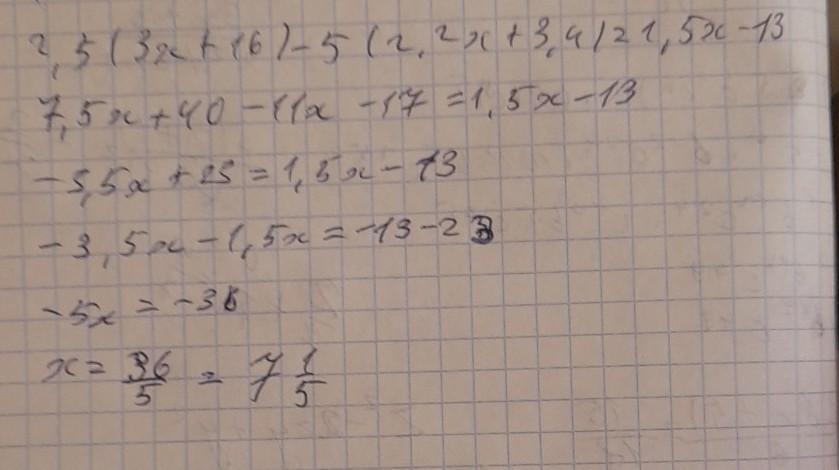 2,5(3x+16)-5(2,2x+3,4)=1,5x-13
7,5x+40-11x-17=1,5x-13
-3,5x+23=1,5x-13
-3,5x-1,5x=-13-23
-5x=-36
x=36/5=7 1/5